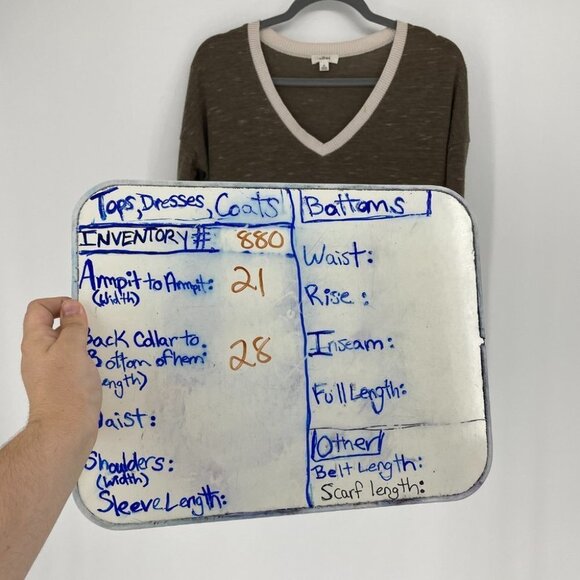 Tops, Dresses, Coats
INVENTORY #: 880
Armpit to Armpit: 21
(Width)
Back Collar to
Bottom of hem: 28
(Length)
Waist:
Shoulders:
(width)
Sleeve Length:
Bottoms
Waist:
Rise:
Inseam:
Full Length:
Other
Belt Length:
Scarf length: